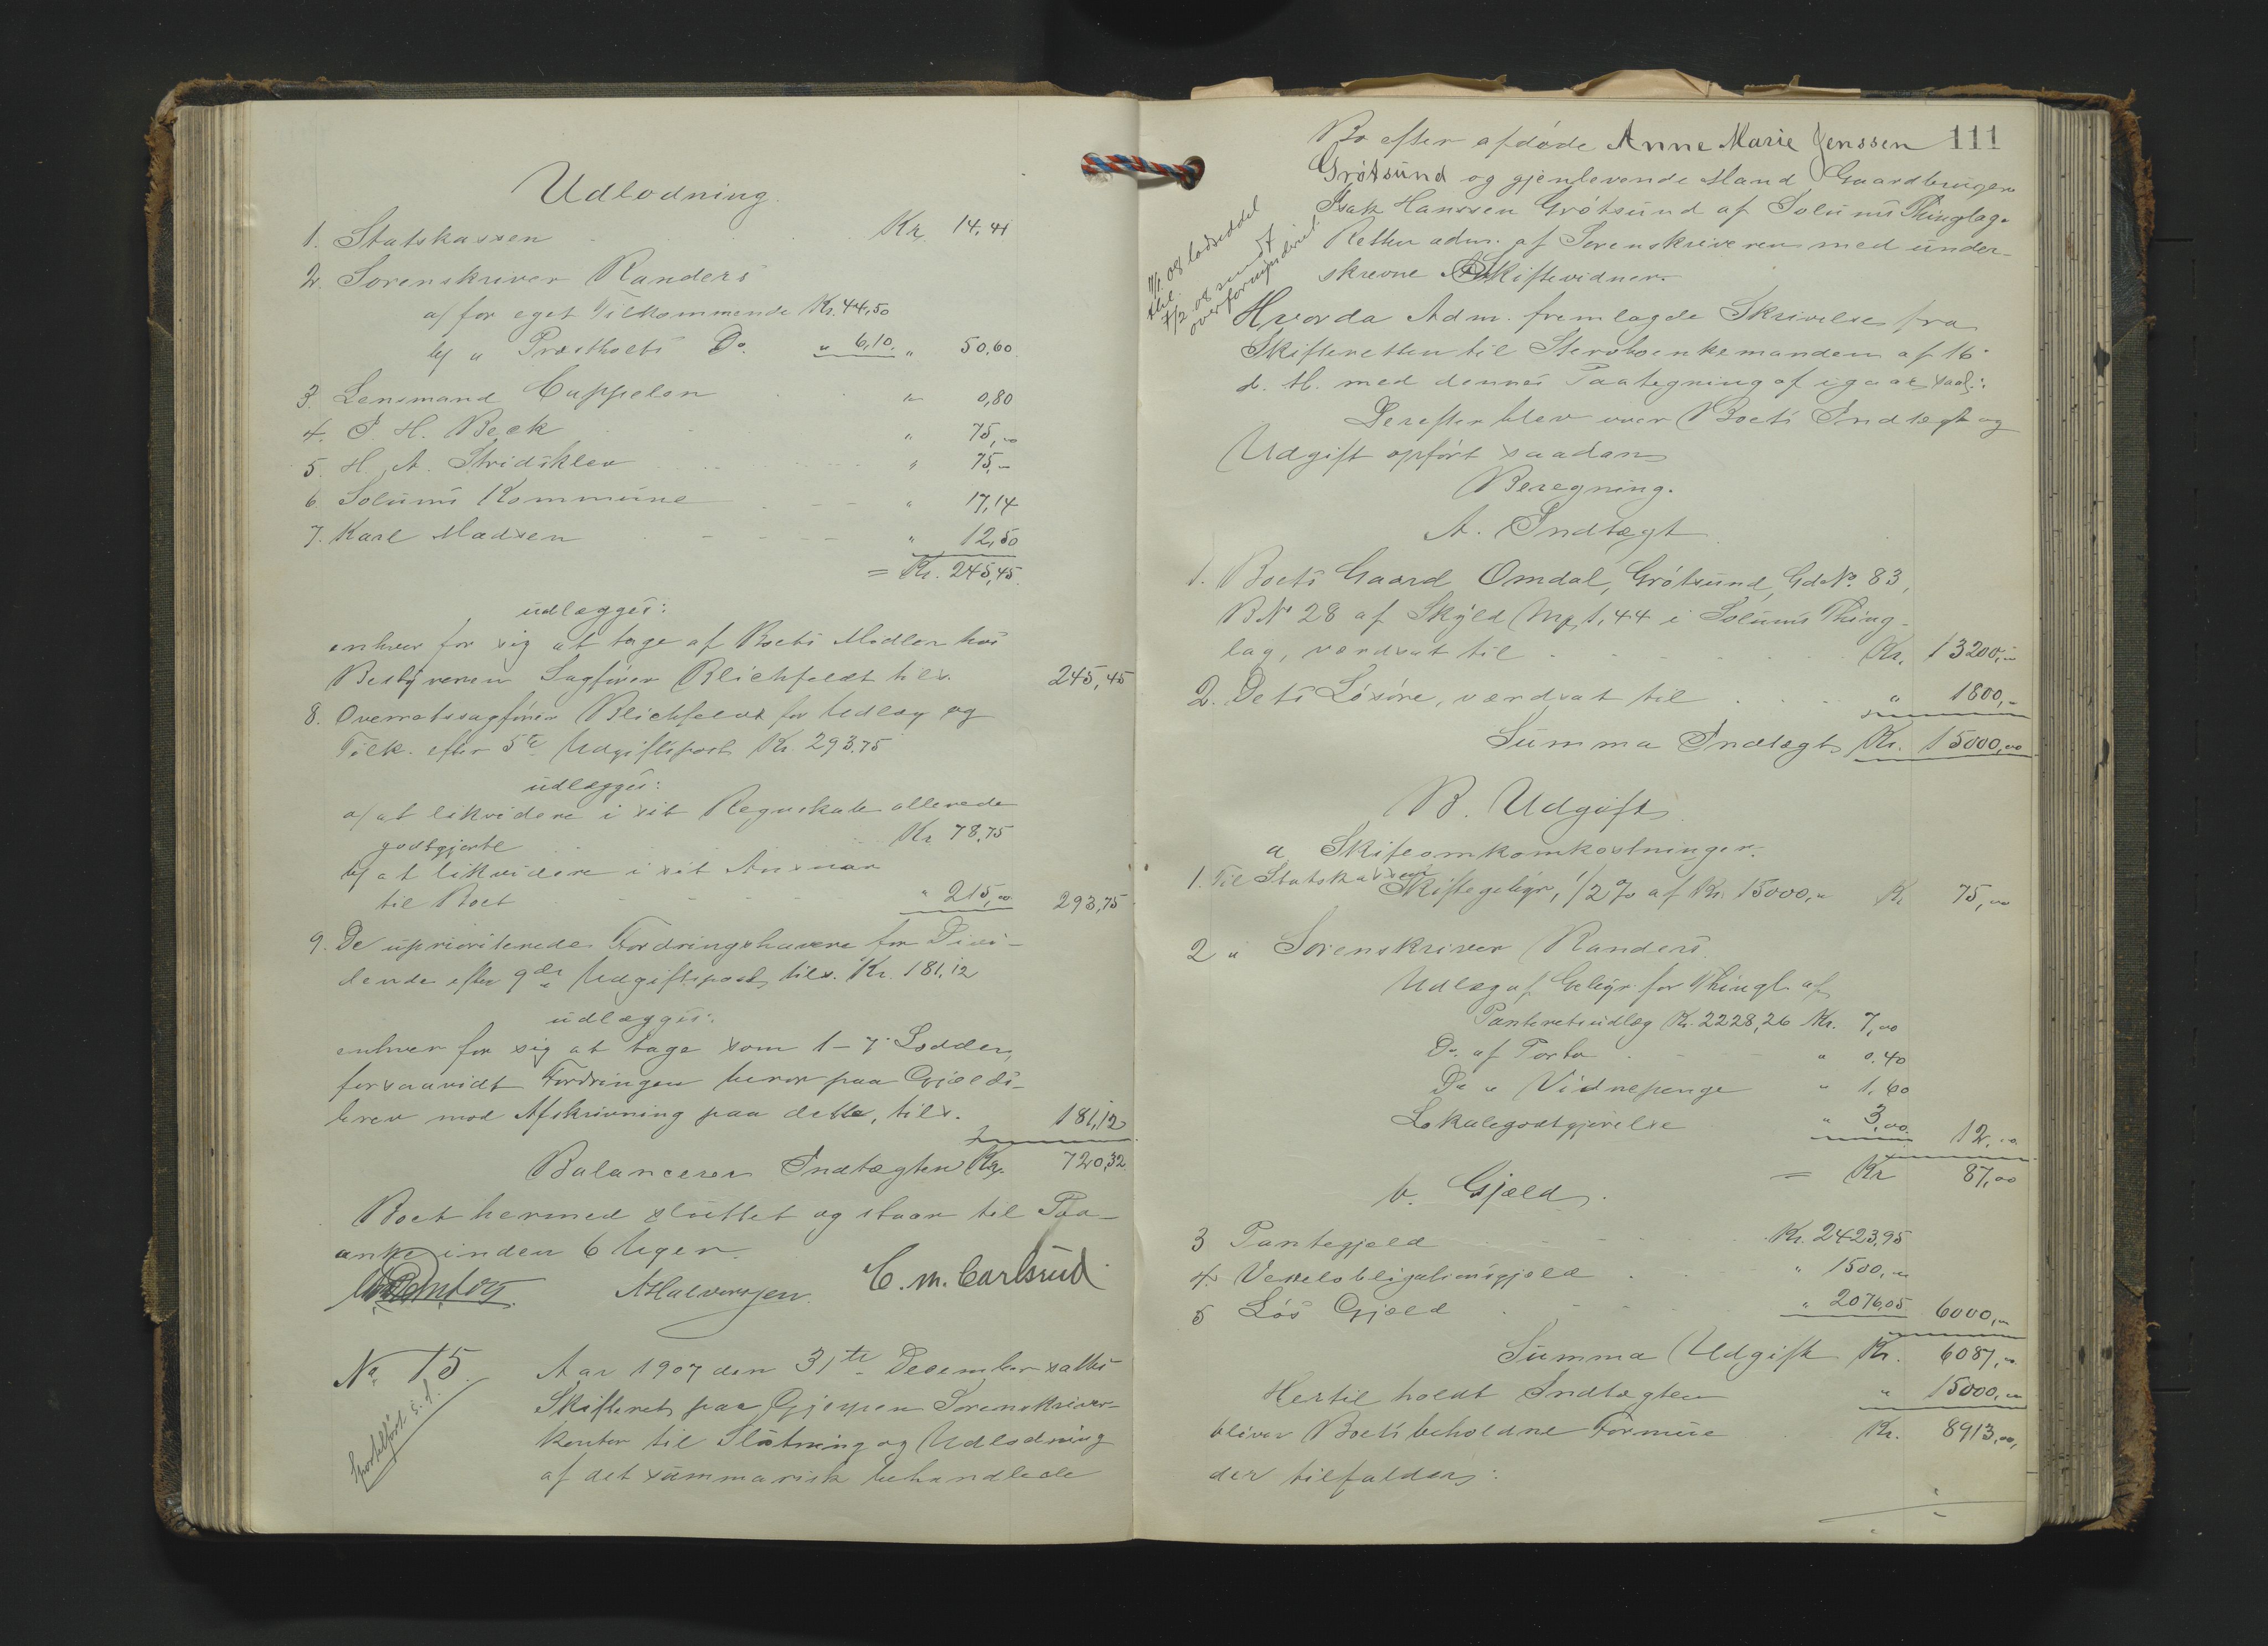 Udlodning.
1. Statskassen Kr. 14,41
2. Sorenskriver Randers
a/ for eget Tilkommende Kr. 44,50
b/ " Præstholts Do. " 6,10. " 50,60.
3. Lensmand Cappelen " 0,80
4. P. H. Beck " 75,00
5. H. A. Stridsklev " 75,-
6 Solums Kommune " 17,14
7. Karl Madsen " 12,50
= Kr. 245,45.
udlægges:
enhver for sig at tage af Boets Midler hos
Bestyreren Sagfører Blichfeldt tils. 245,45
8. Overretssagfører Blichfeldt for Udlæg og
Tilk. efter 5te Udgiftspost Kr. 293,75
udlægges:
a/ at likvidere i sit Regnskab allerede
godtgjorte Kr 78,75
b/ at likvidere i sit Ansvar
til Boet " 215,00 293,75
9. De uprioriterede Fordringshavere for Divi-
dende efter 9de Udgiftspost, tils. Kr. 181,12
udlægges:
enhver for sig at tage som 1-7 Lodder,
forsaavidt Fordringen beror paa Gjælds-
brev mod Afskrivning paa dette, tils. 181,12
Balancerer Indtægten Kr. 720,32
Boet hermed sluttet og staar til Paa-
anke inden 6 Uger.
AHalvorsen. C. M. Carlsrud
No. 15. Aar 1907 den 31te December sattes
Skifteret paa Gjerpen Sorenskriver-
kontor til Slutning og Udlodning
af det summarisk behandlede
Sportelført s. d.
111
Bo efter afdøde Anne Marie Jenssen
Grøtsund og gjenlevende Mand Gaardbruger
Isak Hanssen Grøtsund af Solums Thinglag.
Retten adm. af Sorenskriveren med under-
skrevne Skiftevidner.
Hvorda Adm. fremlagde Skrivelse fra
Skifteretten til Stervboenkemanden af 16.
d. M. med dennes Paategning af igaar saal.:
Derefter blev over Boets Indtægt og
Udgift opført saadan
Beregning.
A. Indtægt
1. Boets Gaard Omdal, Grøtsund, Gd.No. 83,
B.No 28 af Skyld Mrk 1,44 i Solums Thing-
lag, værdsat til Kr. 13200,-
2. Dets Løsøre, værdsat til " 1800,-
Summa Indtægt Kr. 15000,00
B. Udgift
a Skifteomkomkostninger.
1. Til Statskassen
Skiftegebyr, 1/2 % af Kr. 15000,- Kr 75,00
2 " Sorenskriver Randers.
Udlæg af Gebyr for Thingl. af
Panteretsudlæg Kr. 2228,26 Kr. 7,00
Do. af Porto " 0.40
Do " Vidnepenge " 1,60
Lokalegodtgjørelse " 3,00. 12,00
= Kr 87,00
b. Gjæld.
3 Pantegjæld Kr. 2423,95
4. Vexelobligationsgjæld " 1500,-
5 Løs Gjæld " 2076,05 6000,-
Summa Udgift Kr. 6087,-
Hertil holdt Indtægten " 15000,-
bliver Boets beholdne Formue Kr. 8913,00,
der tilfalder: